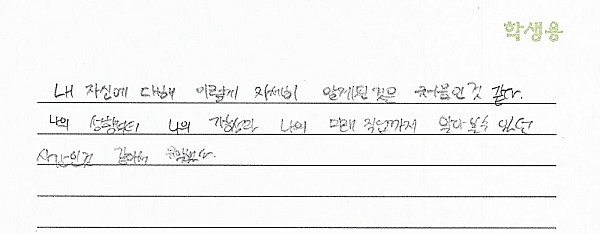 학생용
내 자신에 대해 이렇게 자세히 알게된 것은 처음인것 같다.
나의 성향부터 나의 나의 미래 직업까지 알아볼수 있던
시간인것 같아서